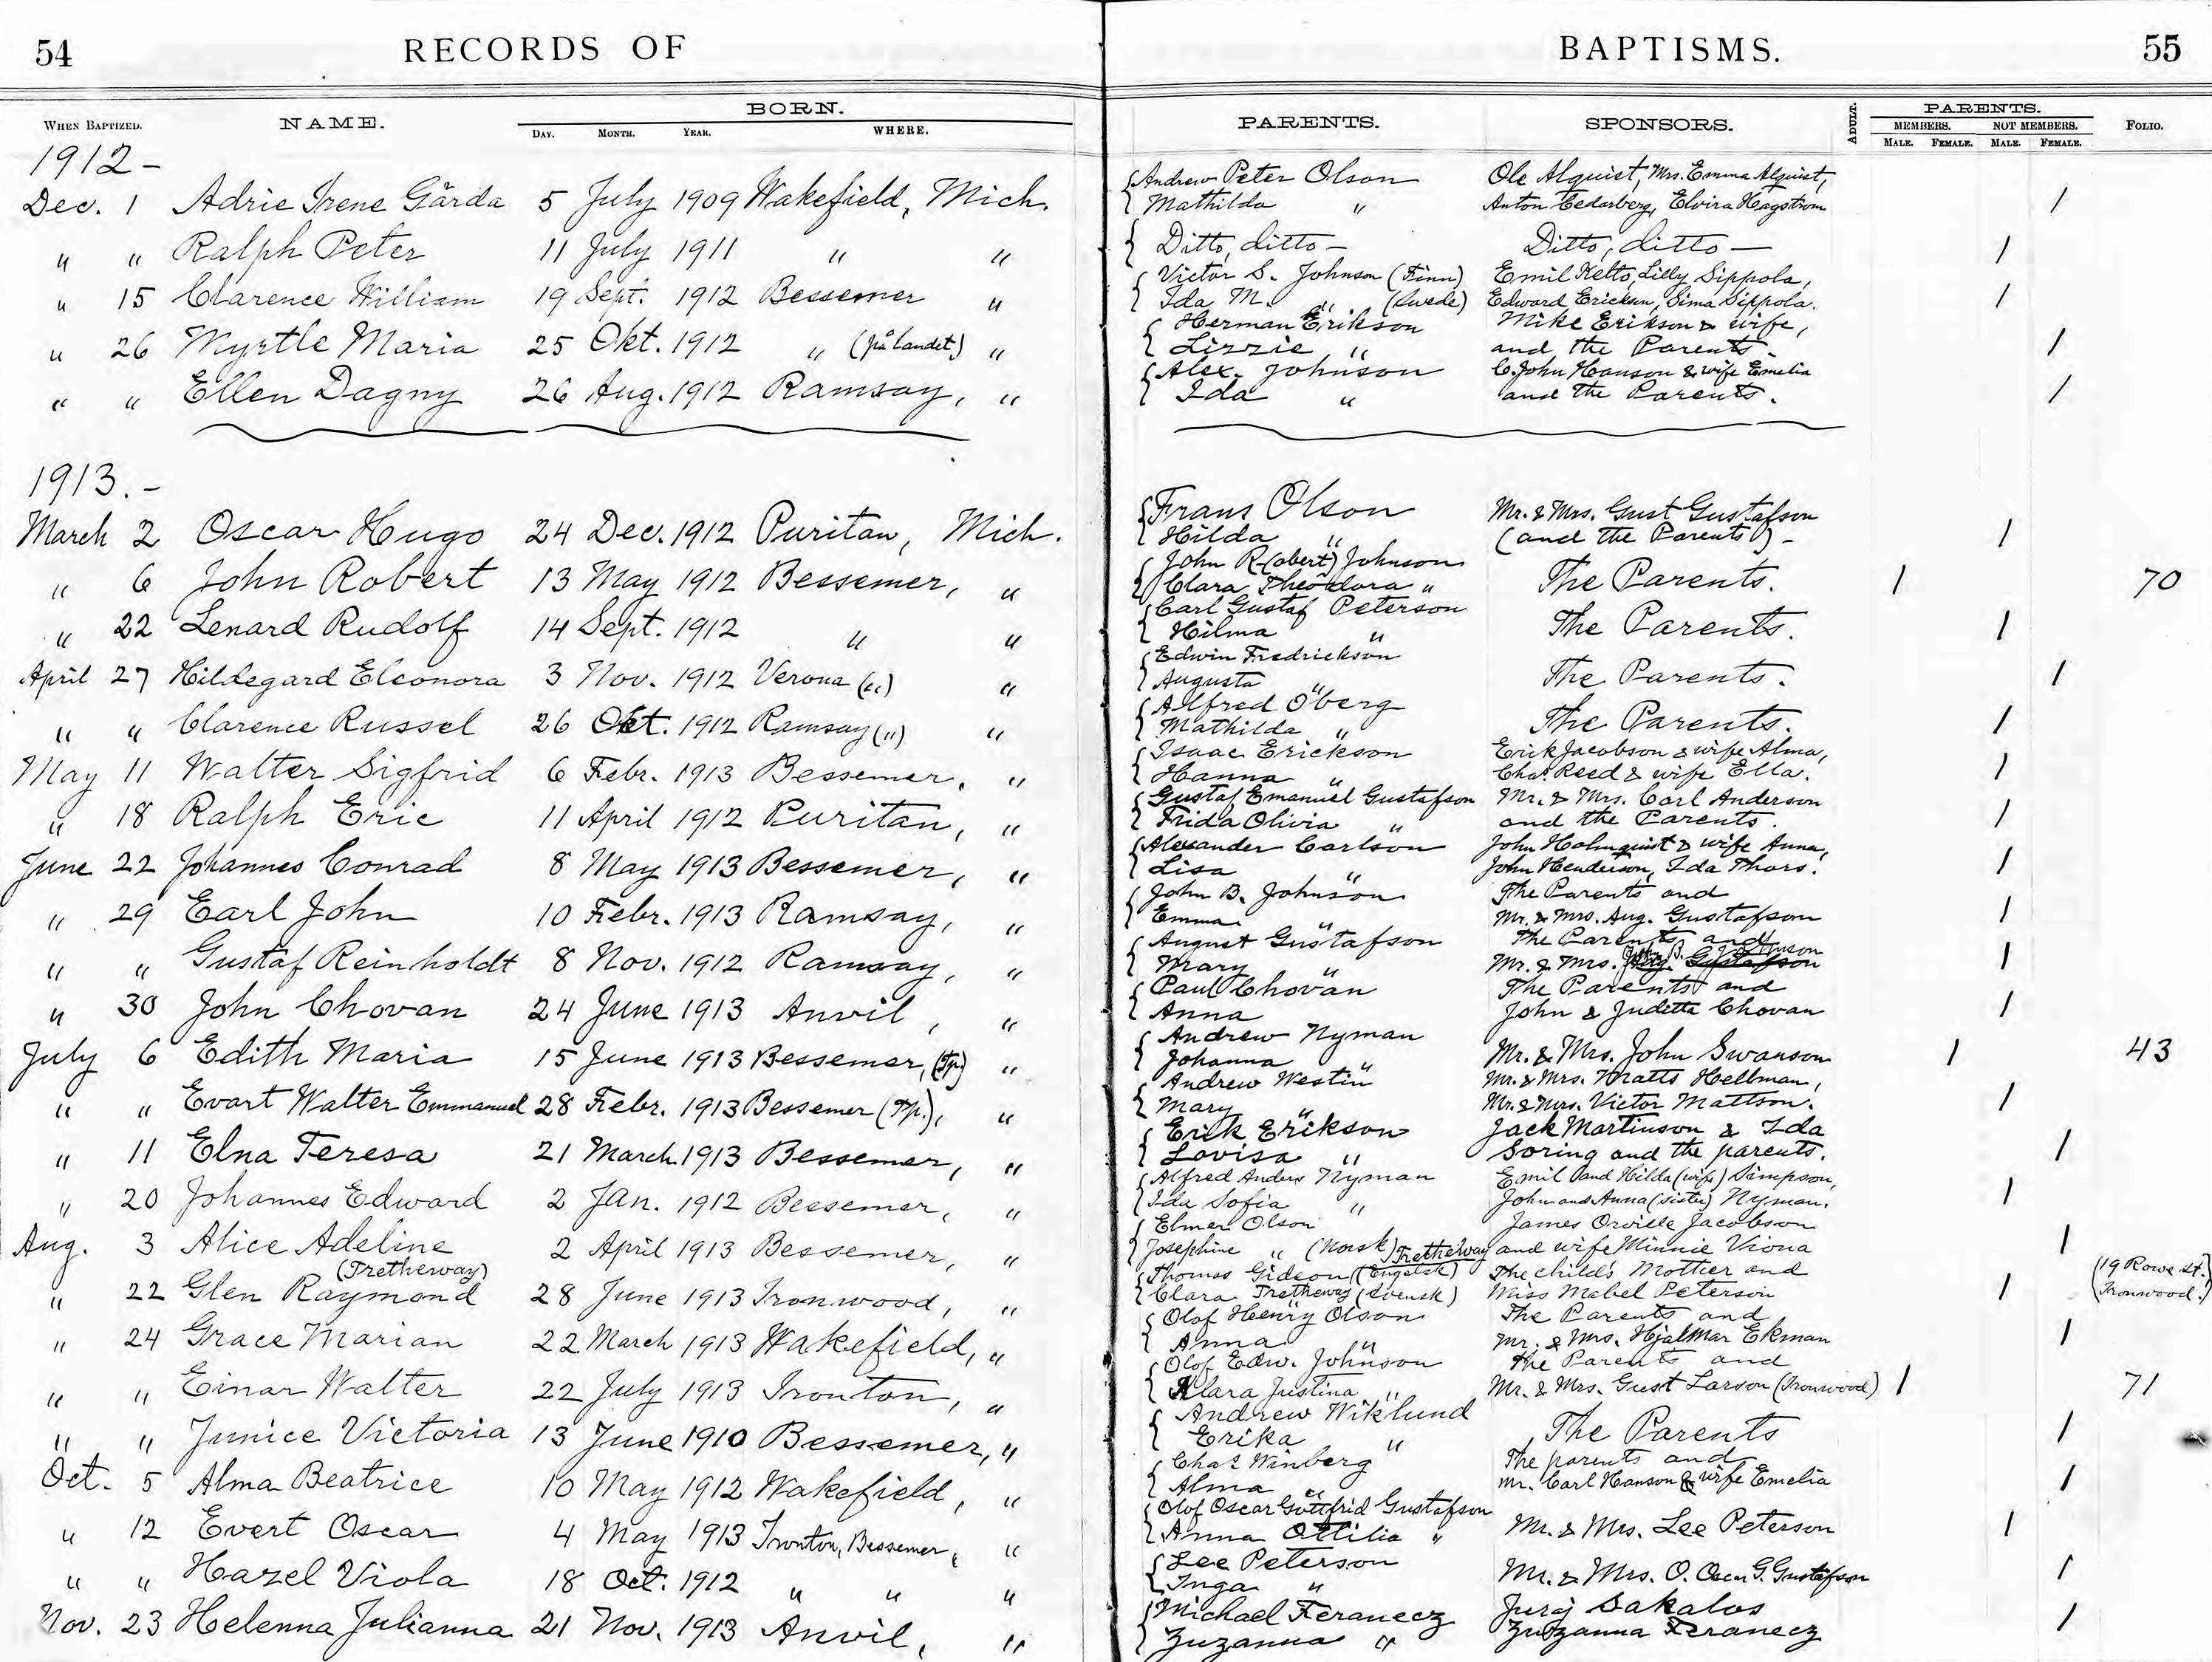 54 RECORDS OF
BAPTISMS. 55
WHEN BAPTIZED. NAME. BORN. DAY. MONTH. YEAR. WHERE.
PARENTS. SPONSORS. ADULT. PARENTS. MEMBERS. NOT MEMBERS. MALE. FEMALE. MALE. FEMALE. FOLIO.
1912 -
Dec. 1 Adrie Irene Gärda 5 July 1909 Wakefield, Mich.
{ Andrew Peter Olson Ole Alquist, Mrs. Emma Alquist,
Mathilda " Anton Cedarberg, Elvira Hagstrom /
" " Ralph Peter 11 July 1911 " "
{ Ditto, ditto — Ditto, ditto — /
" 15 Clarence William 19 Sept. 1912 Bessemer "
{ Victor S. Johnson (Finn) Emil Kelto, Lilly Sippola,
Ida M. " (Swede) Edward Erickson, Sima Sippola. /
" 26 Myrtle Maria 25 Okt. 1912 " (på landet) "
{ Herman Erikson Mike Erikson & wife,
Lizzie " and the Parents. /
" " Ellen Dagny 26 Aug. 1912 Ramsay, "
{ Alex. Johnson C. John Hanson & wife Emelia
Ida " and the Parents. /
1913. -
March 2 Oscar Hugo 24 Dec. 1912 Puritan, Mich.
{ Frans Olson Mr. & Mrs. Gust Gustafson
Hilda " (and the Parents) - /
" 6 John Robert 13 May 1912 Bessemer, "
{ John R(obert) Johnson
Clara Theodora " The Parents. / 70
" 22 Lenard Rudolf 14 Sept. 1912 " "
{ Carl Gustaf Peterson
Hilma " The Parents. /
April 27 Hildegard Eleonora 3 Nov. 1912 Verona (") "
{ Edwin Fredrickson
Augusta " The Parents. /
" " Clarence Russel 26 Okt. 1912 Ramsay (") "
{ Alfred Öberg
Mathilda " The Parents. /
May 11 Walter Sigfrid 6 Febr. 1913 Bessemer, "
{ Isaac Erickson Erik Jacobson & wife Alma,
Hanna " Chas. Reed & wife Ella. /
" 18 Ralph Eric 11 April 1912 Puritan, "
{ Gustaf Emanuel Gustafson Mr. & Mrs. Carl Anderson
Frida Olivia " and the Parents. /
June 22 Johannes Conrad 8 May 1913 Bessemer, "
{ Alexander Carlson John Holmquist & wife Anna,
Lisa " John Henderson, Ida Thors. /
" 29 Earl John 10 Febr. 1913 Ramsay, "
{ John B. Johnson The Parents and
Emma " Mr. & Mrs. Aug. Gustafson /
" " Gustaf Reinholdt 8 Nov. 1912 Ramsay, "
{ August Gustafson The Parents and
John B. Johnson
Mary " Mr. & Mrs. Aug. Gustafson /
" 30 John Chovan 24 June 1913 Anvil, "
{ Paul Chovan The Parents and
Anna John & Juditta Chovan /
July 6 Edith Maria 15 June 1913 Bessemer, (Tp.) "
{ Andrew Nyman
Johanna " Mr. & Mrs. John Swanson / 43
" " Evart Walter Emmanuel 28 Febr. 1913 Bessemer (Tp.), "
{ Andrew Westin Mr. & Mrs. Matts Hellman,
Mary " Mr. & Mrs. Victor Mattson. /
" 11 Elna Teresa 21 March 1913 Bessemer, "
{ Erik Erikson Jack Martinson & Ida
Lovisa " Soring and the parents. /
" 20 Johannes Edward 2 Jan. 1912 Bessemer, "
{ Alfred Anders Nyman Emil and Hilda (wife) Simpson,
Ida Sofia " John and Anna (sister) Nyman. /
Aug. 3 Alice Adeline 2 April 1913 Bessemer, "
{ Elmer Olson James Orville Jacobson
Josephine " (Norsk) and wife Minnie Viona /
(Tretheway)
" 22 Glen Raymond 28 June 1913 Ironwood, "
Tretheway
{ Thomas Gideon (Engelsk) The child's Mother and
Clara Tretheway (Svensk) Miss Mabel Peterson / (19 Rowe St. Ironwood.)
" 24 Grace Marian 22 March 1913 Wakefield, "
{ Olof Henry Olson The Parents and
Anna " Mr. & Mrs. Hjalmar Ekman /
" " Einar Walter 22 July 1913 Ironton, "
{ Olof Edw. Johnson the Parents and
Klara Justina " Mr. & Mrs. Gust Larson (Ironwood) / 71
" " Junice Victoria 13 June 1910 Bessemer, "
{ Andrew Wiklund
Erika " The Parents /
Oct. 5 Alma Beatrice 10 May 1912 Wakefield, "
{ Chas. Winberg The parents and
Alma " Mr. Carl Hanson & wife Emelia /
" 12 Evert Oscar 4 May 1913 Ironton, Bessemer, "
{ Olof Oscar Gottfrid Gustafson
Anna Ottilia " Mr. & Mrs. Lee Peterson /
" " Hazel Viola 18 Oct. 1912 " " "
{ Lee Peterson
Inga " Mr. & Mrs. O. Oscar G. Gustafson /
Nov. 23 Helenna Julianna 21 Nov. 1913 Anvil, "
{ Michael Feranecz Juraj Sakalos
Zuzanna " Zuzanna Feranecz /